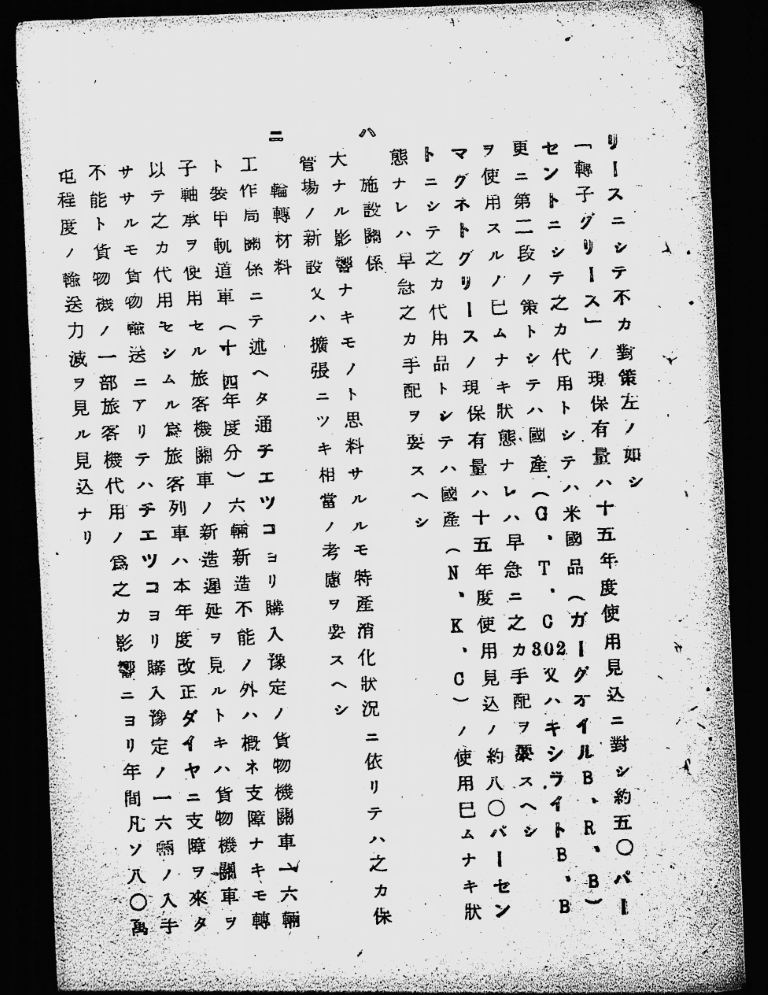 リースニシテ不カ對策左ノ如シ
「轉子グリース」ノ現保有量ハ十五年度使用見込ニ對シ約五〇パー
セントニシテ之カ代用トシテハ米國品(ガーグオイルB、R、B)
更ニ第二段ノ策トシテハ國產(G・T・C302又ハキシライトB、B
ヲ使用スルノ已ムナキ狀態ナレハ早急ニ之カ手配ヲ要スヘシ
マグネトグリースノ現保有量ハ十五年度使用見込ノ約八〇パーセン
トニシテ之カ代用品トシテハ國產(N、K、C)ノ使用已ムナキ狀
態ナレハ早急之カ手配ヲ要スヘシ
ハ 施設關係
大ナル影響ナキモノト思料サルルモ特產消化狀況ニ依リテハ之カ保
管場ノ新設又ハ擴張ニツキ相當ノ考慮ヲ要スヘシ
ニ 輪轉材料
工作局關係ニテ述ヘタ通チエツコヨリ購入豫定ノ貨物機關車一六輛
ト裝甲軌道車(十四年度分)六輛新造不能ノ外ハ概ネ支障ナキモ轉
子軸承ヲ使用セル旅客機關車ノ新造遲延ヲ見ルトキハ貨物機關車ヲ
以テ之カ代用セシムル爲旅客列車ハ本年度改正ダイヤニ支障ヲ來タ
ササルモ貨物輸送ニアリテハチエツコヨリ購入豫定ノ一六輛ノ入手
不能ト貨物機ノ一部旅客機代用ノ爲之カ影響ニヨリ年間凡ソ八〇萬
屯程度ノ輸送力減ヲ見ル見込ナリ